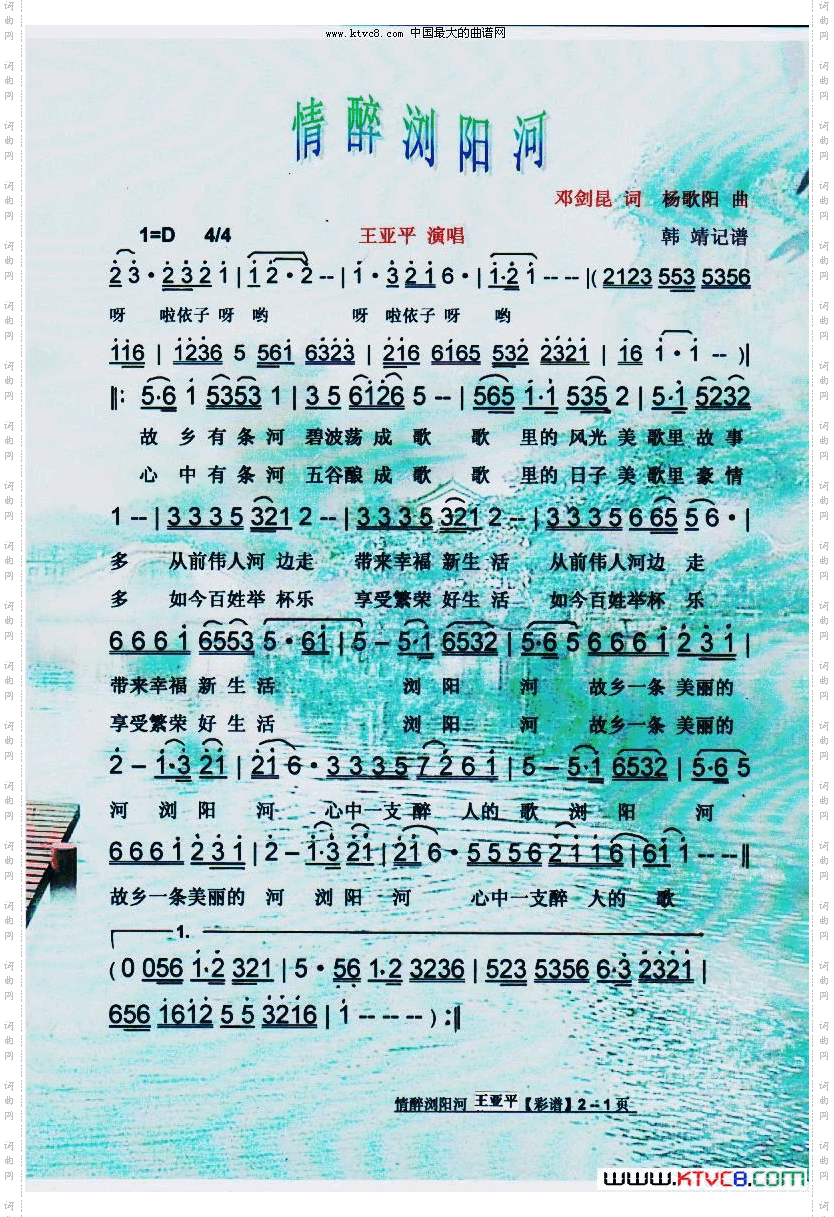 www.ktvc8.com 中国最大的曲谱网
情醉浏阳河
邓剑昆 词 杨歌阳 曲
1=D 4/4 王亚平 演唱 韩 靖记谱
2 3 · 2 3 2 1 | 1 2 · 2 -- | 1 · 3 2 1 6 · | 1 · 2 1 -- -- |( 2123 553 5356
呀 啦依子 呀 哟 呀 啦依子 呀 哟
116 | 1236 5 561 6323 | 216 6165 532 2321 | 16 1 · 1 -- )|
‖: 5·6 1 5353 1 | 3 5 6126 5 -- | 565 1·1 535 2 | 5·1 5232
故 乡 有 条 河 碧波荡 成 歌 歌 里的 风光 美 歌里 故 事
心 中 有 条 河 五谷酿 成 歌 歌 里的 日子 美 歌里 豪 情
1 -- | 3 3 3 5 321 2 -- | 3 3 3 5 321 2 -- | 3 3 3 5 6 65 5 6 · |
多 从前伟人河 边走 带来幸福 新生 活 从前伟人河边 走
多 如今百姓举 杯乐 享受繁荣 好生 活 如今百姓举杯 乐
6 6 6 1 6553 5 · 61 | 5 – 5·1 6532 | 5·6 5 6 6 6 1 2 3 1 |
带来幸福 新 生 活 浏 阳 河 故乡一条 美丽的
享受繁荣 好 生 活 浏 阳 河 故乡一条 美丽的
2 – 1·3 21 | 21 6 · 3 3 3 5 7 2 6 1 | 5 – 5·1 6532 | 5·6 5
河 浏 阳 河 心中一支 醉 人的 歌 浏 阳 河
6 6 6 1 2 3 1 | 2 – 1·3 21 | 21 6 · 5 5 5 6 2 1 1 6 | 61 1 -- -- ‖
故乡一条美丽的 河 浏 阳 河 心中一支醉 人的 歌
1.
( 0 056 1·2 321 | 5 · 56 1·2 3236 | 523 5356 6·3 2321 |
656 1612 5 5 3216 | 1 -- -- -- ) :‖
情醉浏阳河 王亚平 【彩谱】2--1页
www.KTVC8.COM